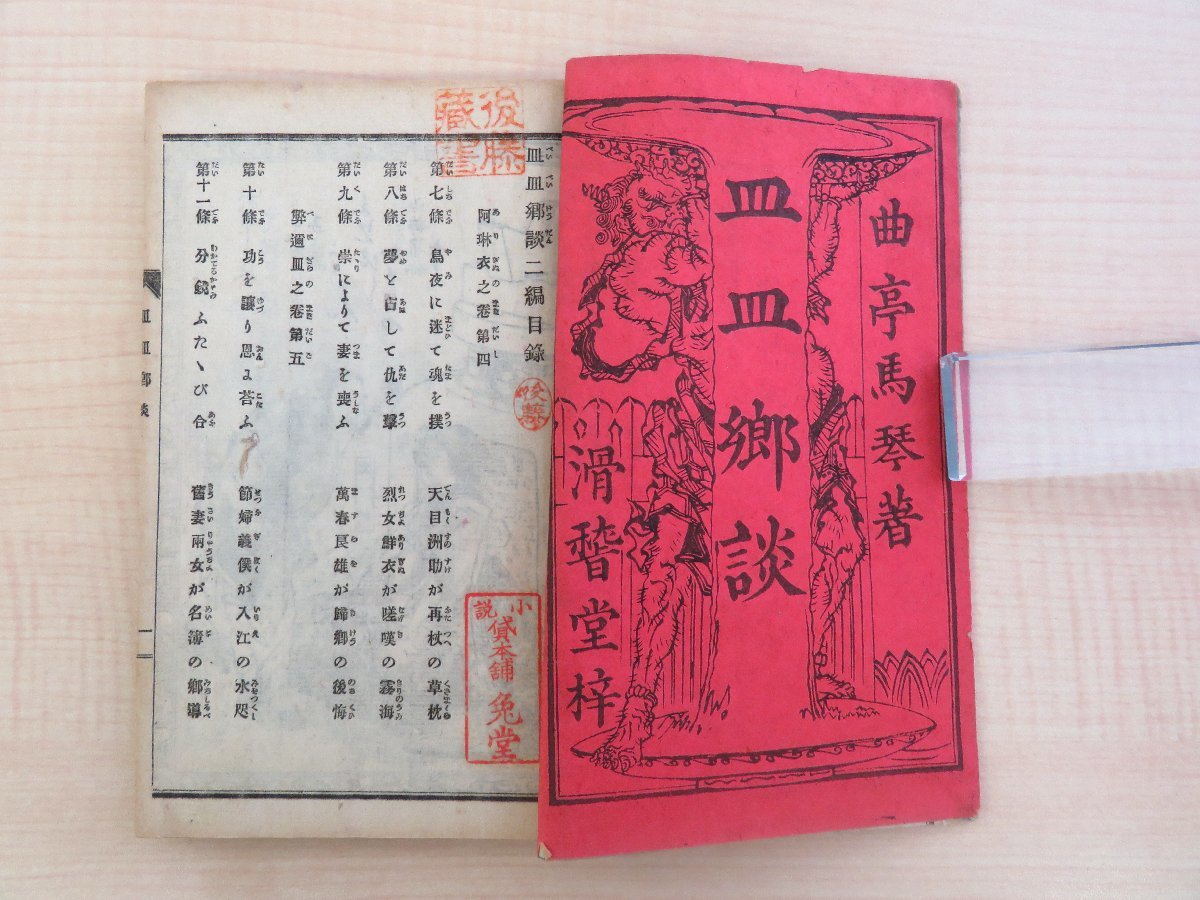 曲亭馬琴著
皿皿郷談
滑稽堂梓
後藤
藏書
皿皿郷談二編目錄
阿琳衣之卷第四
第七條 烏夜に迷て魂を撲 天目洲助が再杖の草枕
第八條 夢を占して仇を擊 烈女鮮衣が嗟嘆の霧海
第九條 崇によりて妻を喪ふ 萬春良雄が歸鄉の後悔
弊邇皿之卷第五
第十條 功を讓り恩を荅ふ 節婦義僕が入江の水咫
第十一條 分鏡ふたゝび合 舊妻兩女が名簿の鄉導
小說
貸本舖
兔堂
皿皿鄉談
一